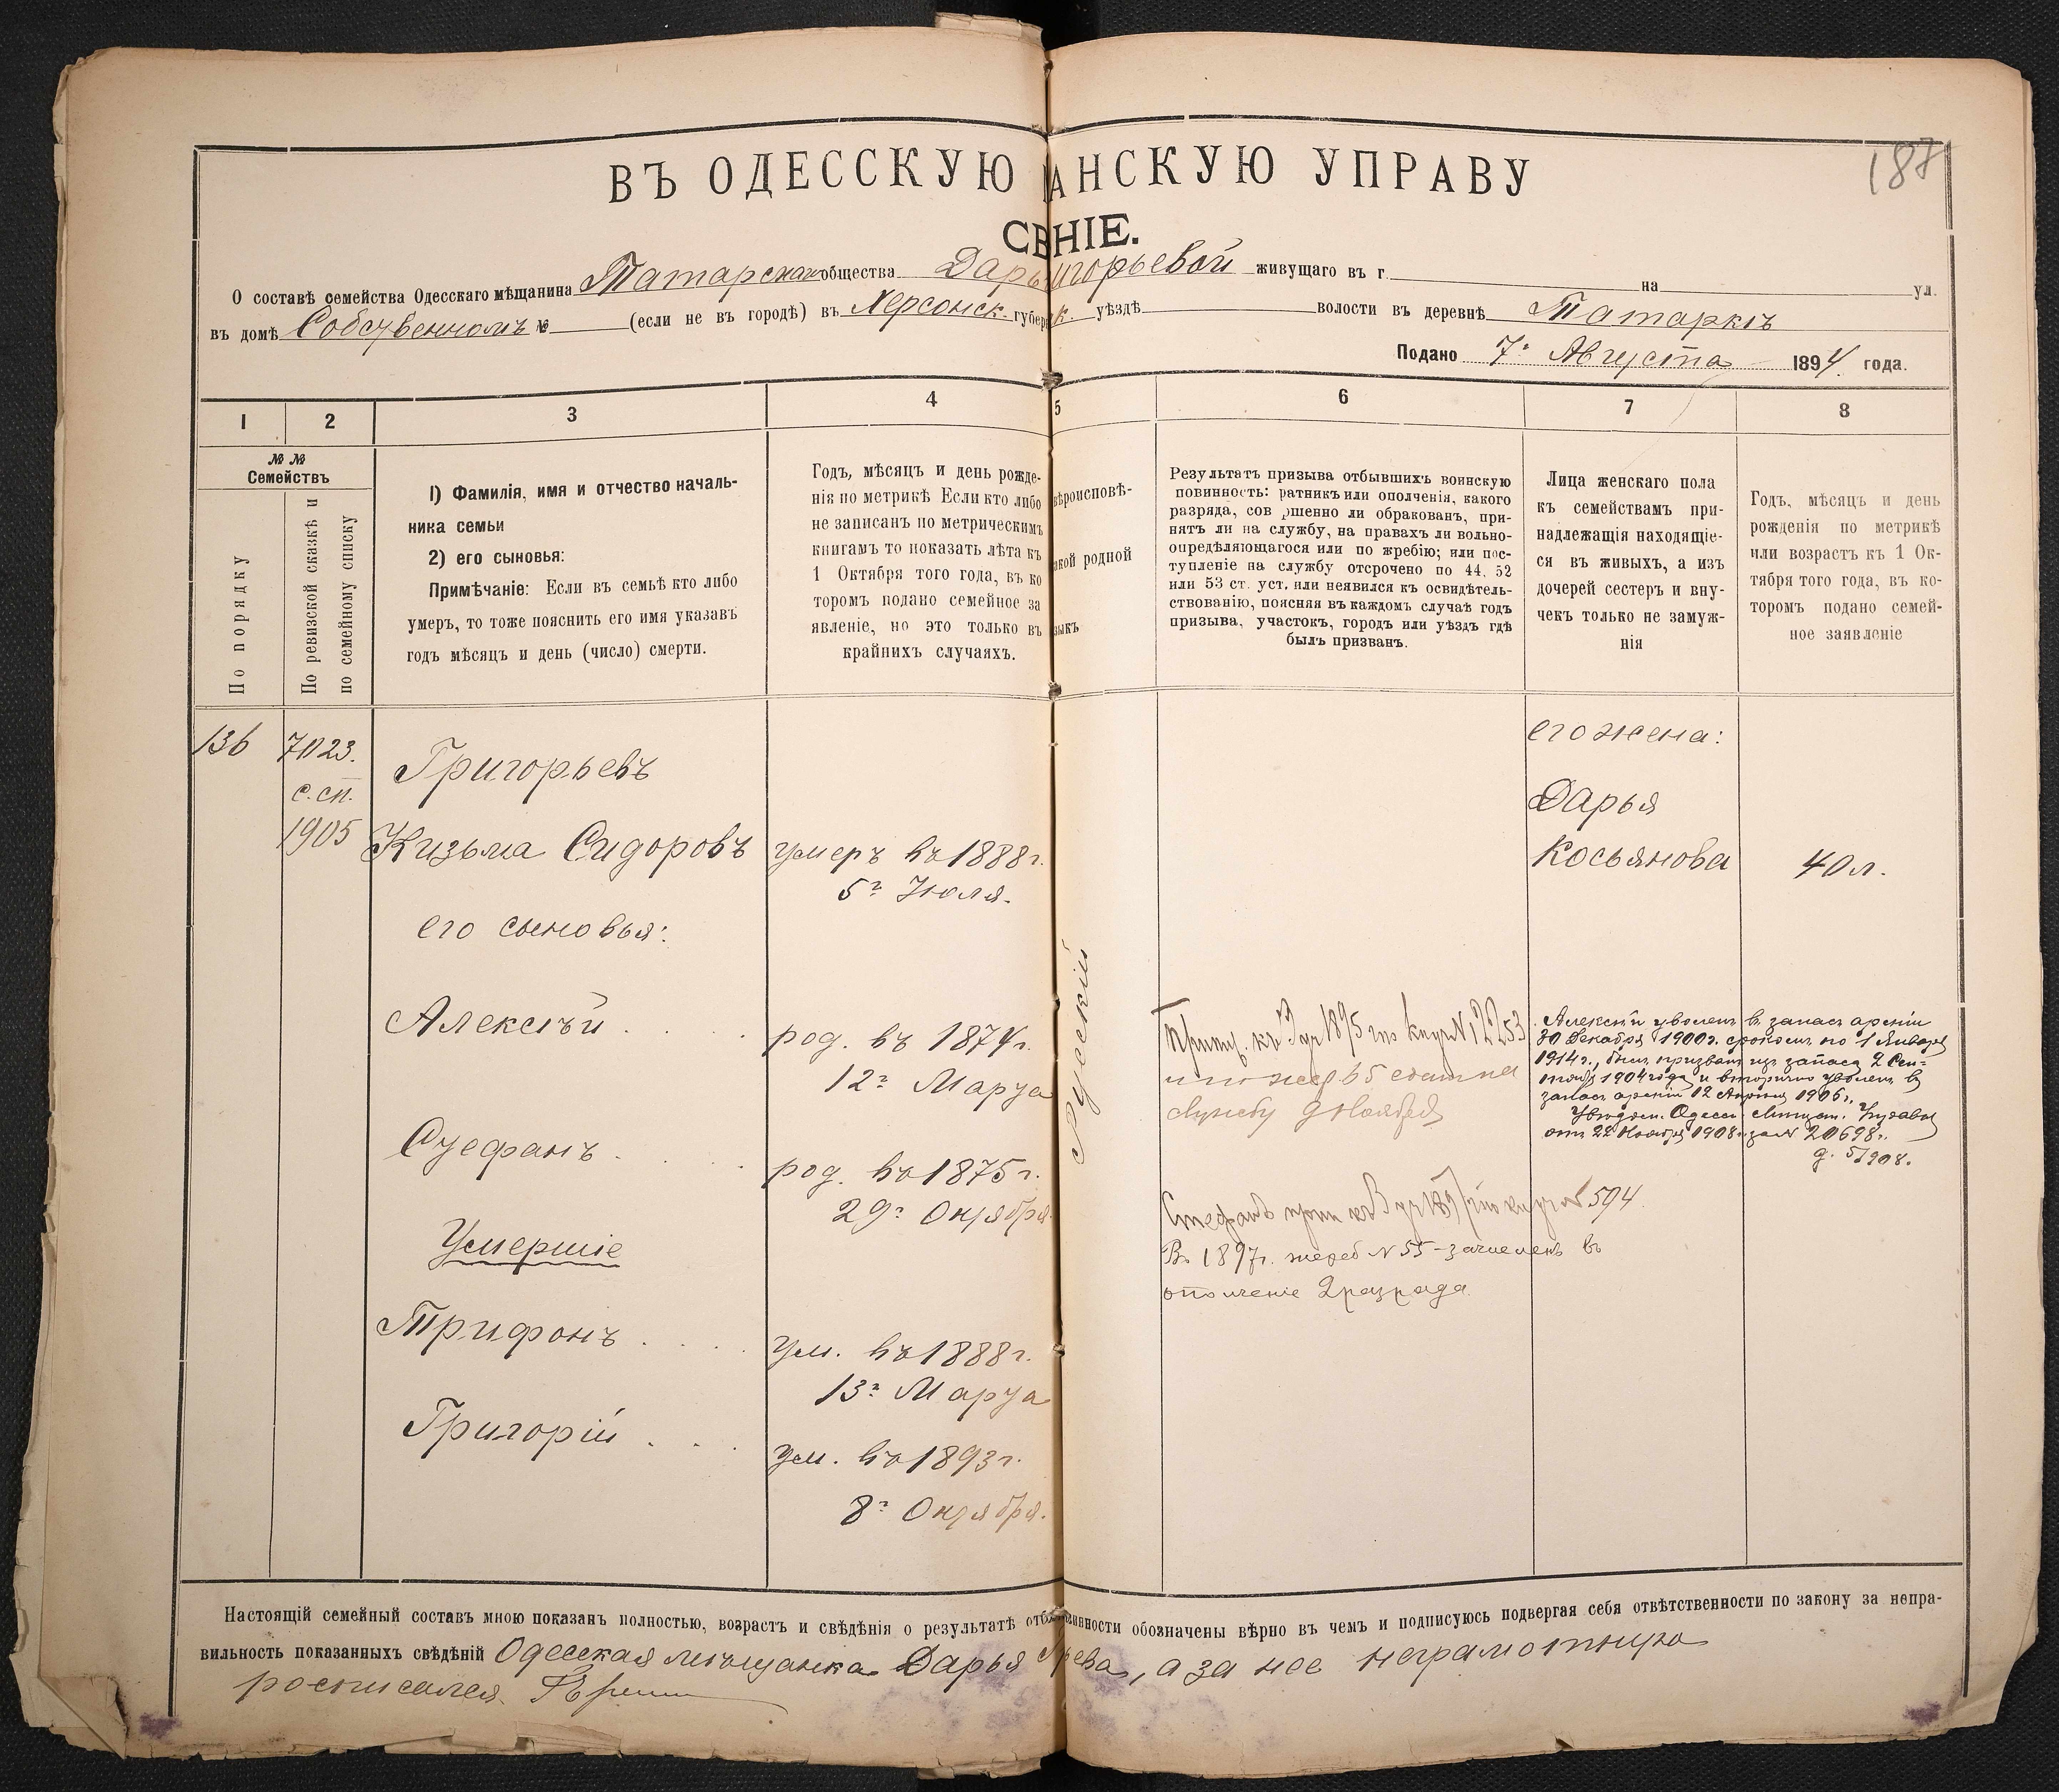 187
ВЪ ОДЕССКУЮ АНСКУЮ УПРАВУ
СЕНІЕ.
О составѣ семейства Одесскаго мѣщанина Татарска общества Дарьи игорьевой живущаго въ г. на ул.
въ домѣ Собственномъ № (если не въ городѣ) въ Херсонск. губер к. уѣздѣ волости въ деревнѣ Татаркѣ
Подано 7го Августа 1894 года.
1 2 3 4 5 6 7 8
№ № Семействъ
По порядку
По ревизской сказкѣ и
по семейному списку
1) Фамилія, имя и отчество началь-
ника семьи
2) его сыновья:
Примѣчаніе: Если въ семьѣ кто либо
умеръ, то тоже пояснить его имя указавъ
годъ мѣсяцъ и день (число) смерти.
Годъ, мѣсяцъ и день рожде-
нія по метрикѣ Если кто либо
не записанъ по метрическимъ
книгамъ то показать лѣта къ
1 Октября того года, въ ко
торомъ подано семейное за
явленіе, но это только въ
крайнихъ случаяхъ.
вѣроисповѣ-
кой родной
зыкъ
Результатъ призыва отбывшихъ воинскую
повинность: ратникъ или ополченія, какого
разряда, сов ршенно ли обракованъ, при-
нятъ ли на службу, на правахъ ли вольно-
опредѣляющагося или по жребію; или пос-
тупленіе на службу отсрочено по 44, 52
или 53 ст. уст. или неявился къ освидѣтель-
ствованію, поясняя въ каждомъ случаѣ годъ
призыва, участокъ, городъ или уѣздъ гдѣ
былъ призванъ.
Лица женскаго пола
къ семействамъ при-
надлежащія находящіе-
ся въ живыхъ, а изъ
дочерей сестеръ и вну-
чекъ только не замуж-
нія
Годъ, мѣсяцъ и день
рожденія по метрикѣ
или возрастъ къ 1 Ок-
тября того года, въ ко-
торомъ подано семей-
ное заявленіе
136
7023.
с. сп.
1905
Григорьевъ
Кизьма Сидоровъ
умеръ въ 1888 г.
5го Июля.
его сыновья:
Алексѣй
род. въ 1874 г.
12го Марта
Стефанъ
род. въ 1875 г.
29го Октября
Умершіе
Трифонъ
ум. въ 1888 г.
13го Марта
Григорій
ум. въ 1893 г.
8го Октября.
Русскій
къ 1895 по № 12253
службу 9 Ноября
Стефанъ № 594
Въ 1897 г. жереб № 55 - зачисленъ въ
ополченіе 2 разряда
его жена:
Дарья
Косьянова
40 л.
Алексѣй уволенъ въ запасъ арміи
30 Декабря 1900 г. срокомъ по 1 Января
1914 г., былъ призванъ изъ запаса 2 Сен-
тября 1904 года и вторично уволенъ въ
запасъ арміи 12 Апрѣля 1906 г.
Увѣдом. Одесс. Мѣщан. Управы
отъ 22 Ноября 1908 г. за № 20698.
д. 5/1908.
Настоящій семейный составъ мною показанъ полностью, возрастъ и свѣдѣнія о результатѣ отб инности обозначены вѣрно въ чемъ и подписуюсь подвергая себя отвѣтственности по закону за непра-
вильность показанныхъ свѣдѣній Одесская мѣщанка Дарья Г рева, а за нее неграмотную
росписался